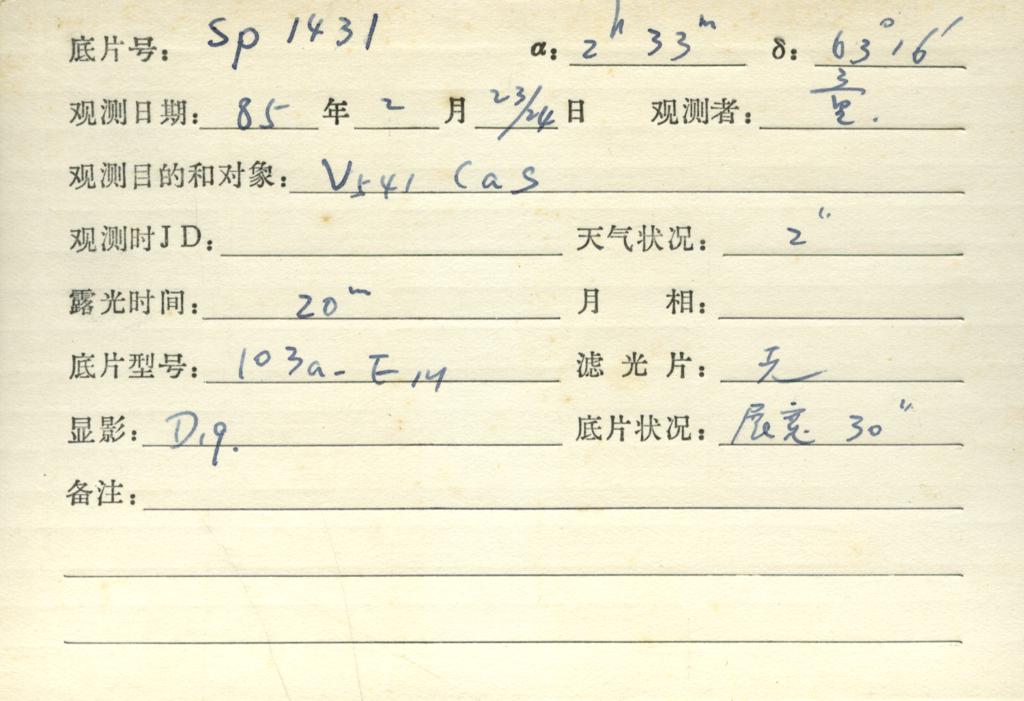 底片号: Sp 1431 α: 2ʰ 33ᵐ δ: 63°16′
观测日期: 85 年 2 月 23/24 日 观测者:
观测目的和对象: V541 Cas
观测时JD: 天气状况: 2″
露光时间: 20ᵐ 月 相:
底片型号: 103a-E 滤光片: 无
显影: D19. 底片状况: 展宽 30″
备注: